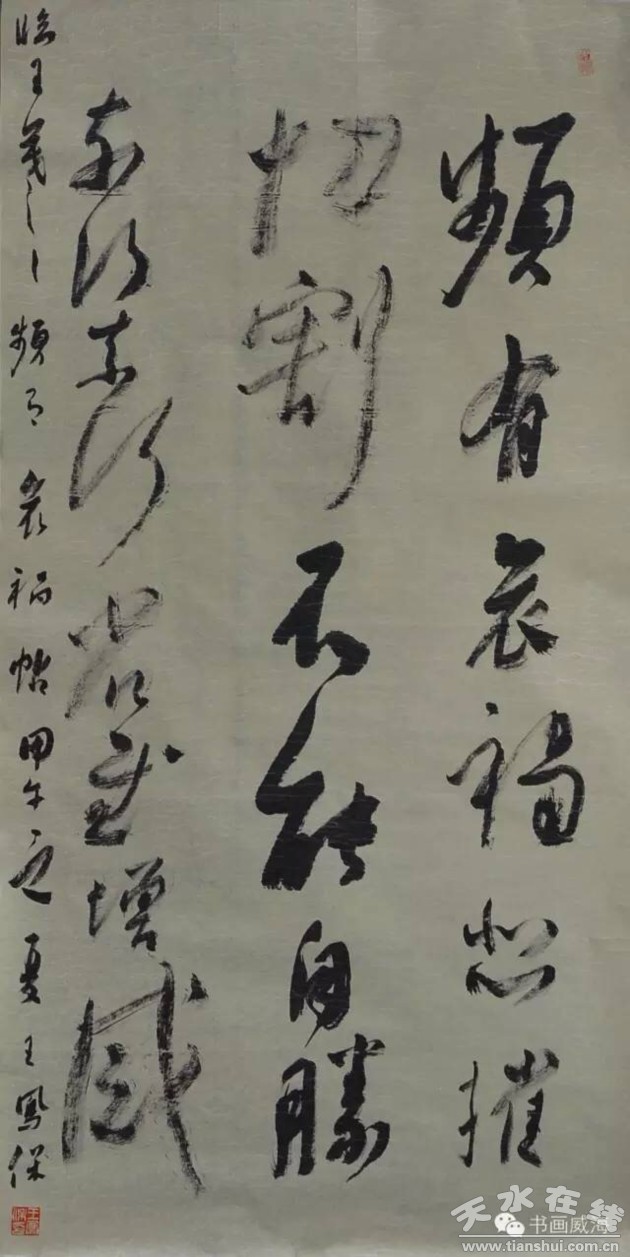 頻有哀禍悲摧
切割不能自勝
奈何奈何省慰增感
临王羲之頻有哀祸帖甲午之夏王鳳保
天水在线
书画威海
www.tianshui.com.cn